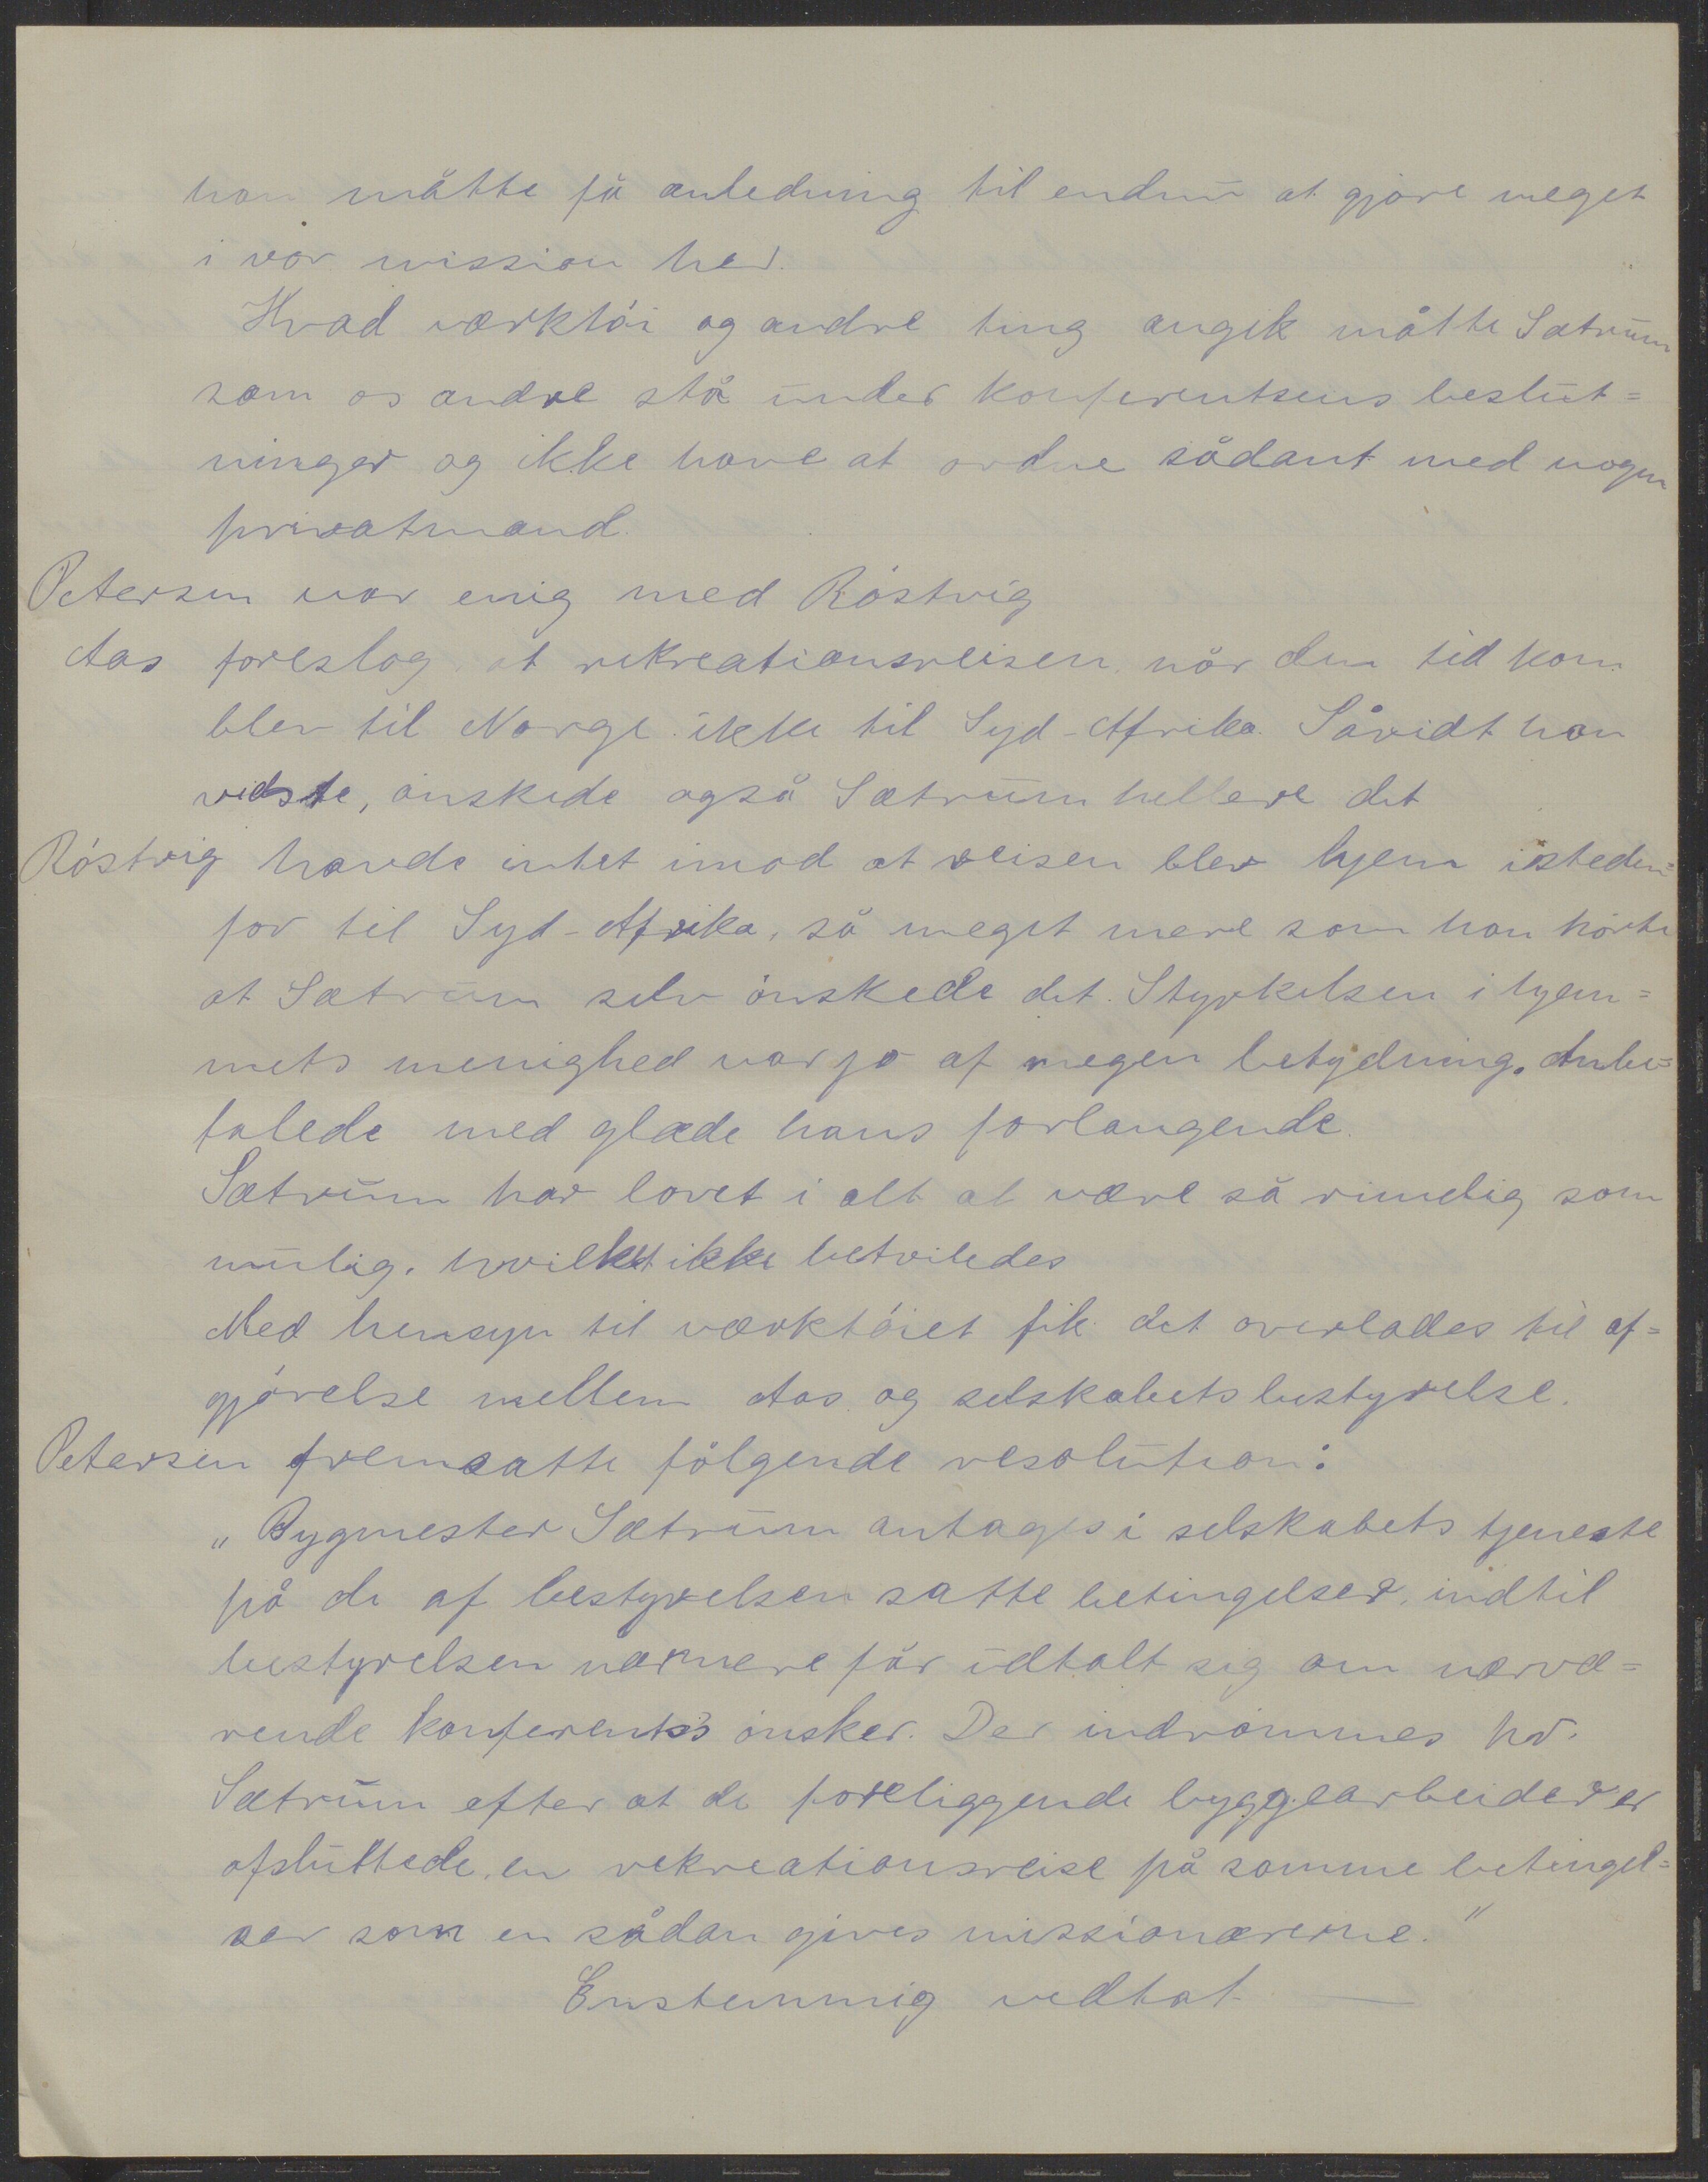 han måtte få anledning til endnu at gjöre meget
i vor mission her.
Hvad værktöi og andre ting angik måtte Sætrum
som os andre stå under konferentsens beslut=
ninger og ikke have at ordne sådant med nogen
privatmand.
Petersen var enig med Röstvig
Aas foreslog at rekreationsreisen når den tid kom
blev til Norge ikke til Syd-Afrika. Såvidt han
vidste, önskede også Sætrum hellere det
Röstvig havde intet imod at reisen blev hjem isteden=
for til Syd-Afrika, så meget mere som han hörte
at Sætrum selv önskede det. Styrkelsen i hjem=
mets menighed var jo af megen betydning. Anbe=
falede med glæde hans forlangende.
Sætrum har lovet i alt at være så rimelig som
mulig, hvilket ikke betviledes
Med hensyn til værktöiet fik det overlades til af=
gjörelse mellem Aas og selskabets bestyrelse.
Petersen fremsatte fölgende resolution:
„Bygmester Sætrum antages i selskabets tjeneste
på de af bestyrelsen satte betingelser, indtil
bestyrelsen nærmere får udtalt sig om nærvæ=
rende konferents's önsker. Der indrömmes hr.
Sætrum efter at de foreliggende byggearbeider er
afsluttede, en rekreationsreise på samme betingel=
ser som en sådan gives missionærerne."
Enstemmig vedtat —